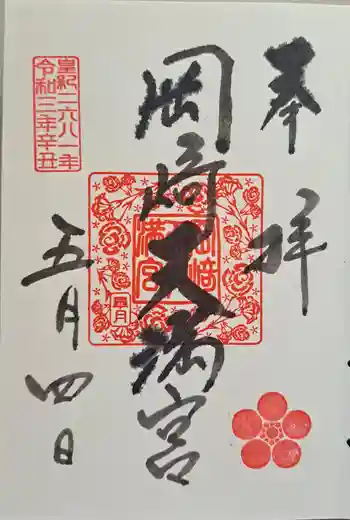 奉拝
岡崎天満宮
皇紀二六八一年
令和三年辛丑
五月四日